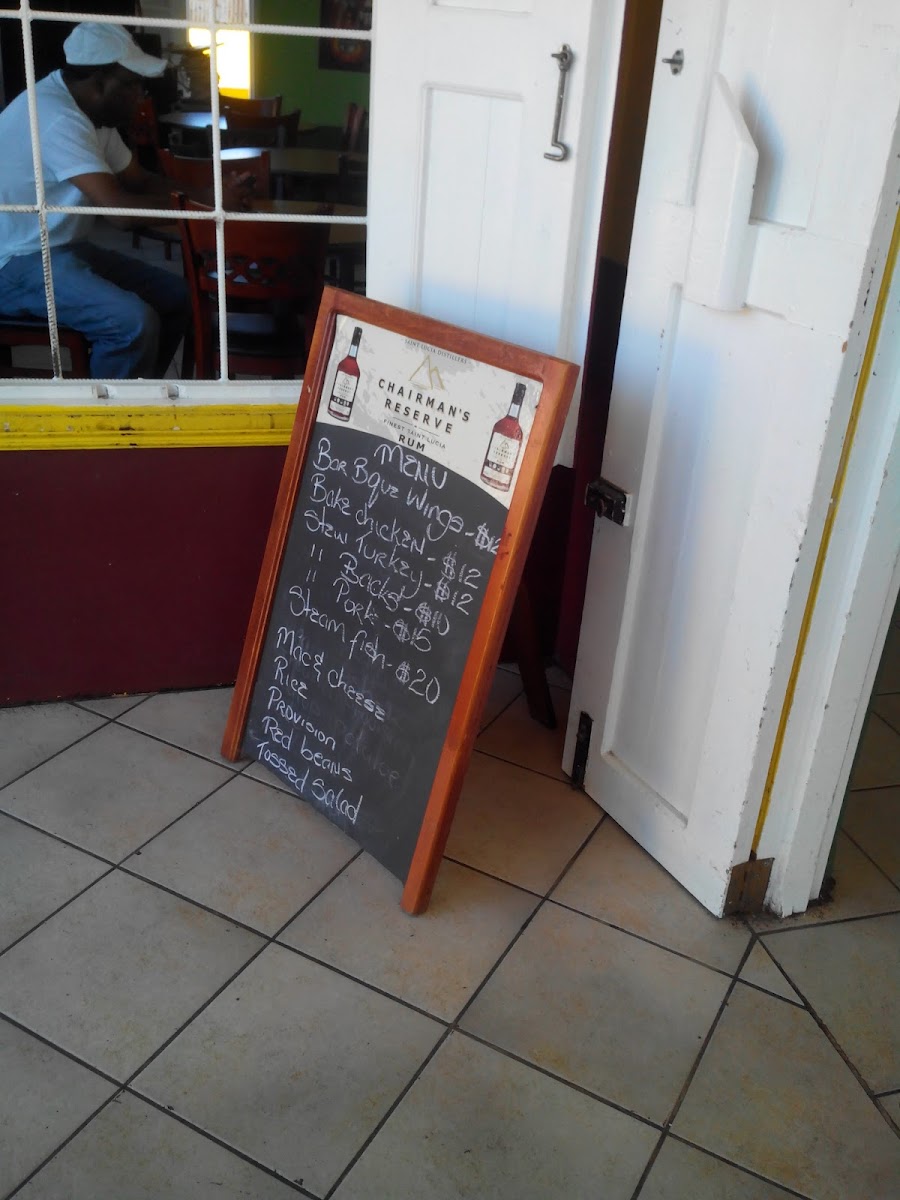 SAINT LUCIA DISTILLERS
CHAIRMAN'S
RESERVE
FINEST SAINT LUCIA
RUM
MENU
Bar Bque Wings - $12
Bake chicken - $12
Stew Turkey - $12
" Backs - $10
" Pork - $15
Steam fish - $20
Mac & cheese
Rice
Provision
Red beans
Tossed Salad